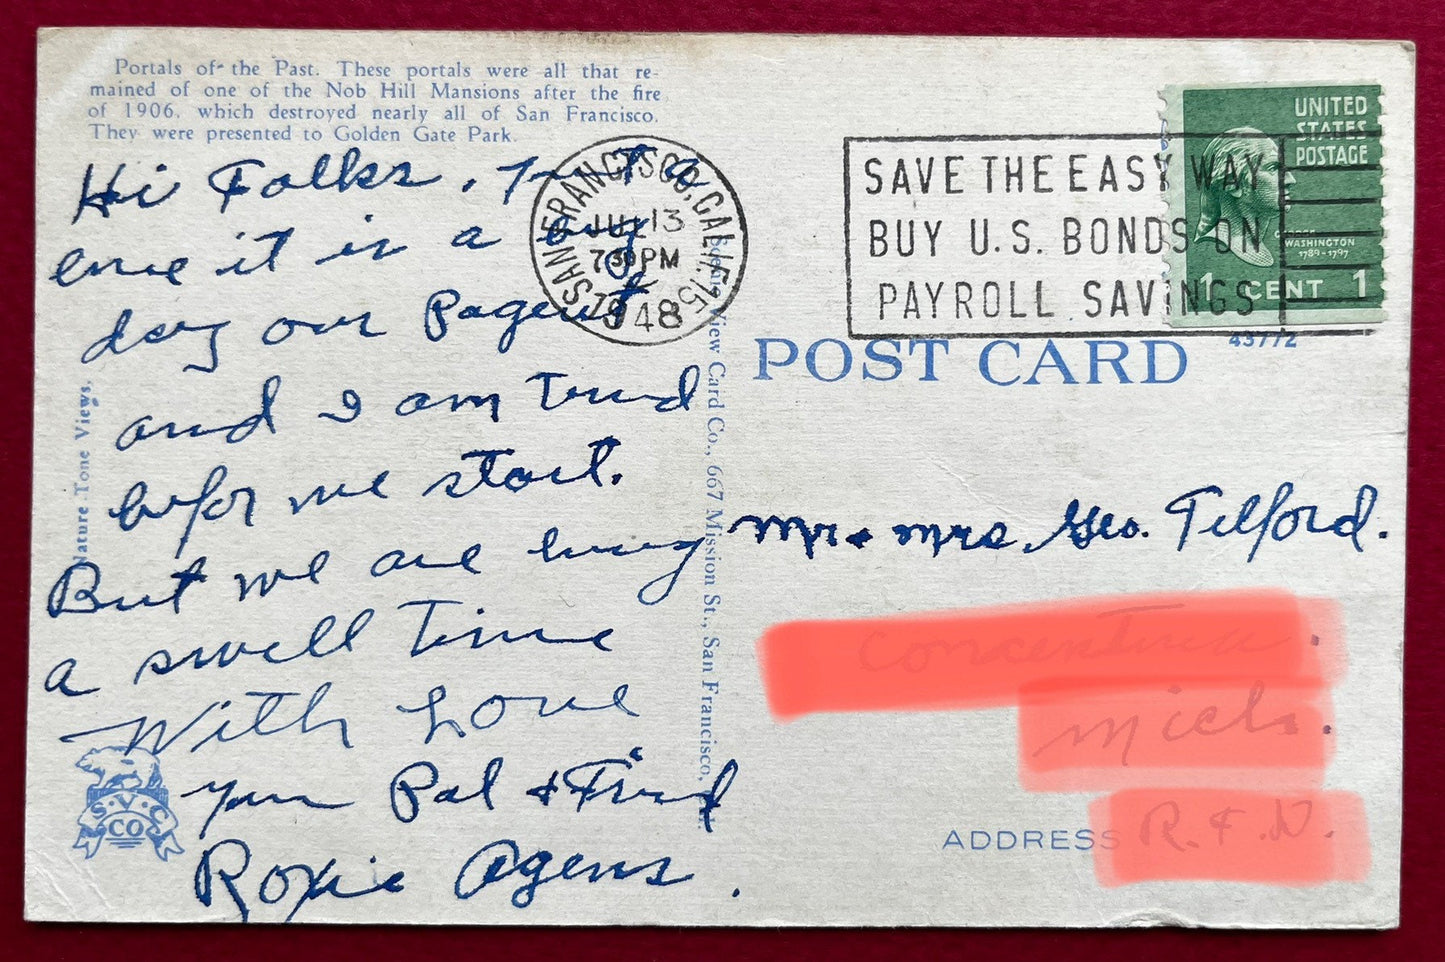 Portals of the Past. These portals were all that re-
mained of one of the Nob Hill Mansions after the fire
of 1906, which destroyed nearly all of San Francisco.
They were presented to Golden Gate Park.
Hi Folks,
ence it is a big
day our Pagent
and I am tired
befor we start.
But we are having
a swell time
With Love
your Pal &
Roxie Agens.
Nature Tone Views.
S.V.C.
CO
Scenic View Card Co., 667 Mission St., San Francisco,
SAN FRANCISCO, CALIF. 15
JUL 13
730 PM
1948
SAVE THE EASY WAY
BUY U.S. BONDS ON
PAYROLL SAVINGS
UNITED
STATES
POSTAGE
GEORGE
WASHINGTON
1789-1797
1 CENT 1
43772
POST CARD
Mr & Mrs. Geo. Telford.
Mich.
ADDRESS R.F.D.